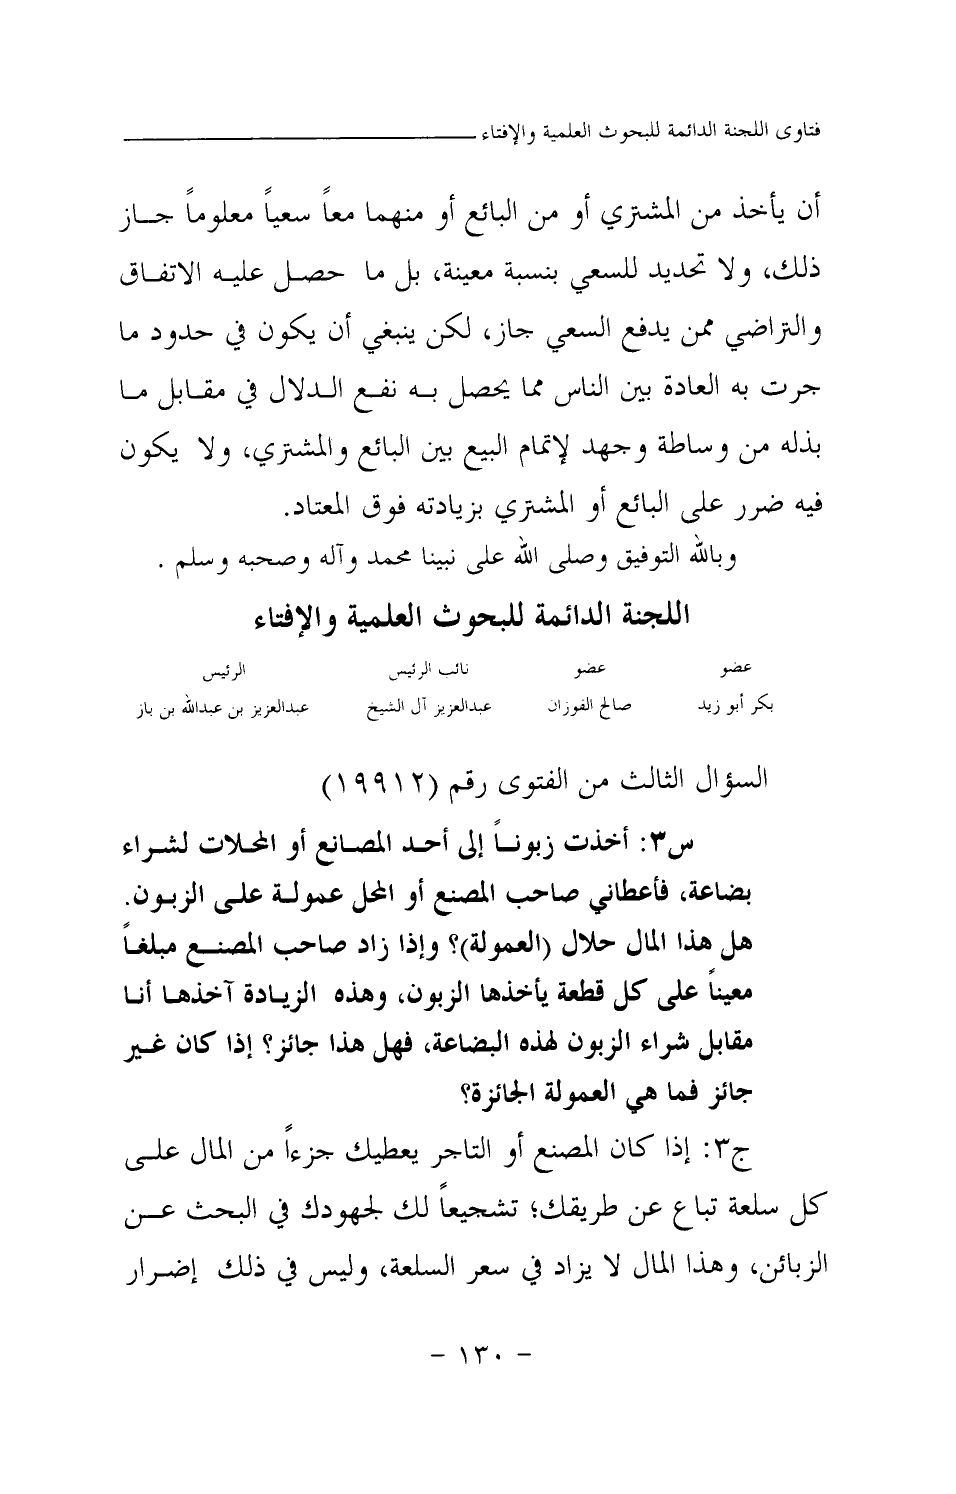 فتاوى اللجنة الدائمة للبحوث العلمية والإفتاء
أن يأخذ من المشتري أو من البائع أو منهما معاً سعياً معلوماً جـــاز
ذلك، ولا تحديد للسعي بنسبة معينة، بل ما حصل عليه الاتفـاق
والتراضي ممن يدفع السعي جاز، لكن ينبغي أن يكون في حدود ما
جرت به العادة بين الناس مما يحصل بـه نفـع الـدلال في مقـابل مـا
بذله من وساطة وجهد لإتمام البيع بين البائع والمشتري، ولا يكون
فيه ضرر على البائع أو المشتري بزيادته فوق المعتاد.
وبالله التوفيق وصلى الله على نبينا محمد وآله وصحبه وسلم .
اللجنة الدائمة للبحوث العلمية والإفتاء
عضو عضو نائب الرئيس الرئيس
بكر أبو زيد صالح الفوزان عبدالعزيز آل الشيخ عبدالعزيز بن عبدالله بن باز
السؤال الثالث من الفتوى رقم (١٩٩١٢)
س٣: أخذت زبونـاً إلى أحـد المصـانع أو المحـلات لشـراء
بضاعة، فأعطاني صاحب المصنع أو المحل عمولـة علـى الزبـون.
هل هذا المال حلال (العمولة)؟ وإذا زاد صاحب المصنـــع مبلغـاً
معيناً على كل قطعة يأخذها الزبون، وهذه الزيـادة آخذهـا أنـا
مقابل شراء الزبون لهذه البضاعة، فهل هذا جائز؟ إذا كان غـير
جائز فما هي العمولة الجائزة؟
ج٣: إذا كان المصنع أو التاجر يعطيك جزءاً من المال علـــى
كل سلعة تباع عن طريقك؛ تشجيعاً لك لجهودك في البحث عـــن
الزبائن، وهذا المال لا يزاد في سعر السلعة، وليس في ذلك إضـرار
- ١٣٠ -